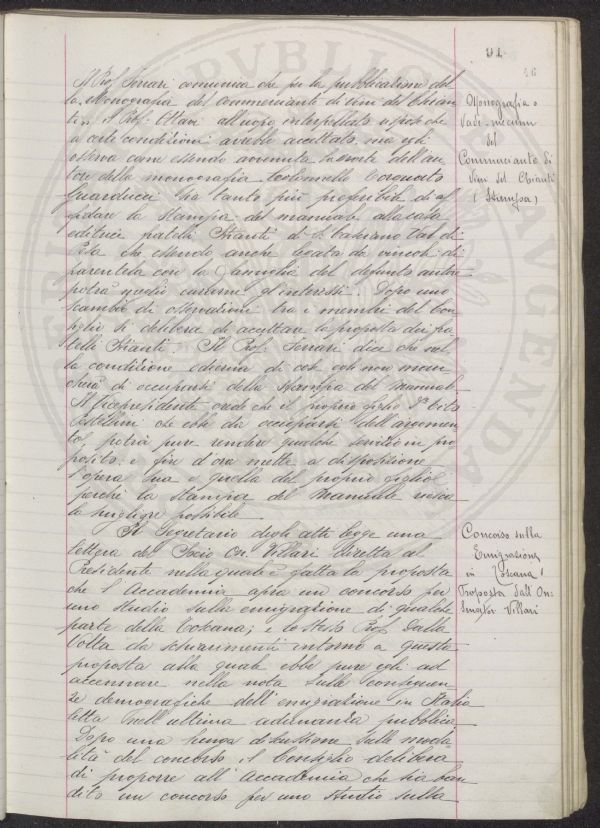 91
Il Prof. Ferrari comunica che per la pubblicazione del
la Monografia del Commerciante di vini del Chian
ti, il Prof. Ottavi all'uopo interpellato rispose che
a certe condizioni avrebbe accettato, ma egli
osserva come essendo avvenuta la morte dell'au
tore della monografia Colonnello Torquato
Guarducci sia tanto più preferibile di af
fidare la stampa del manuale alla casa
editrice fratelli Stianti di S. Casciano Val di
Pesa che essendo anche legata da vincoli di
parentela con la famiglia del defunto autore
potrà meglio curarne gl'interessi. Dopo uno
scambio di osservazioni tra i membri del Con
siglio si delibera di accettare la proposta dei fra
telli Stianti. Il Prof. Ferrari dice che nel
la condizione odierna di cose egli non man
cherà di occuparsi della stampa del manuale.
Il Vicepresidente crede che il proprio figlio Dr. Vito
Pestellini che ebbe da occuparsi dell'argomen
to, potrà pure rendere qualche servizio in pro
posito, e fin d'ora mette a disposizione
l'opera sua e quella del proprio figlio
perchè la stampa del Manuale riesca
la migliore possibile.
Il Segretario degli atti legge una
lettera del Socio On. Villari diretta al
Presidente nella quale è fatta la proposta
che l'Accademia apra un concorso per
uno studio sulla emigrazione di qualche
parte della Toscana; e lo stesso Prof. Dalla
Volta dà schiarimenti intorno a questa
proposta alla quale ebbe pure egli ad
accennare nella nota sulle conseguen
ze demografiche dell'emigrazione in Italia
letta nell'ultima adunanza pubblica.
Dopo una lunga discussione sulle moda
lità del concorso il Consiglio delibera
di proporre all'Accademia che sia ban
dito un concorso per uno studio sulla
Monografia o
Vade-mecum
del
Commerciante di
Vini del Chianti
(Stampa)
Concorso sulla
Emigrazione
in Toscana
Proposta dall'On.
Senator Villari